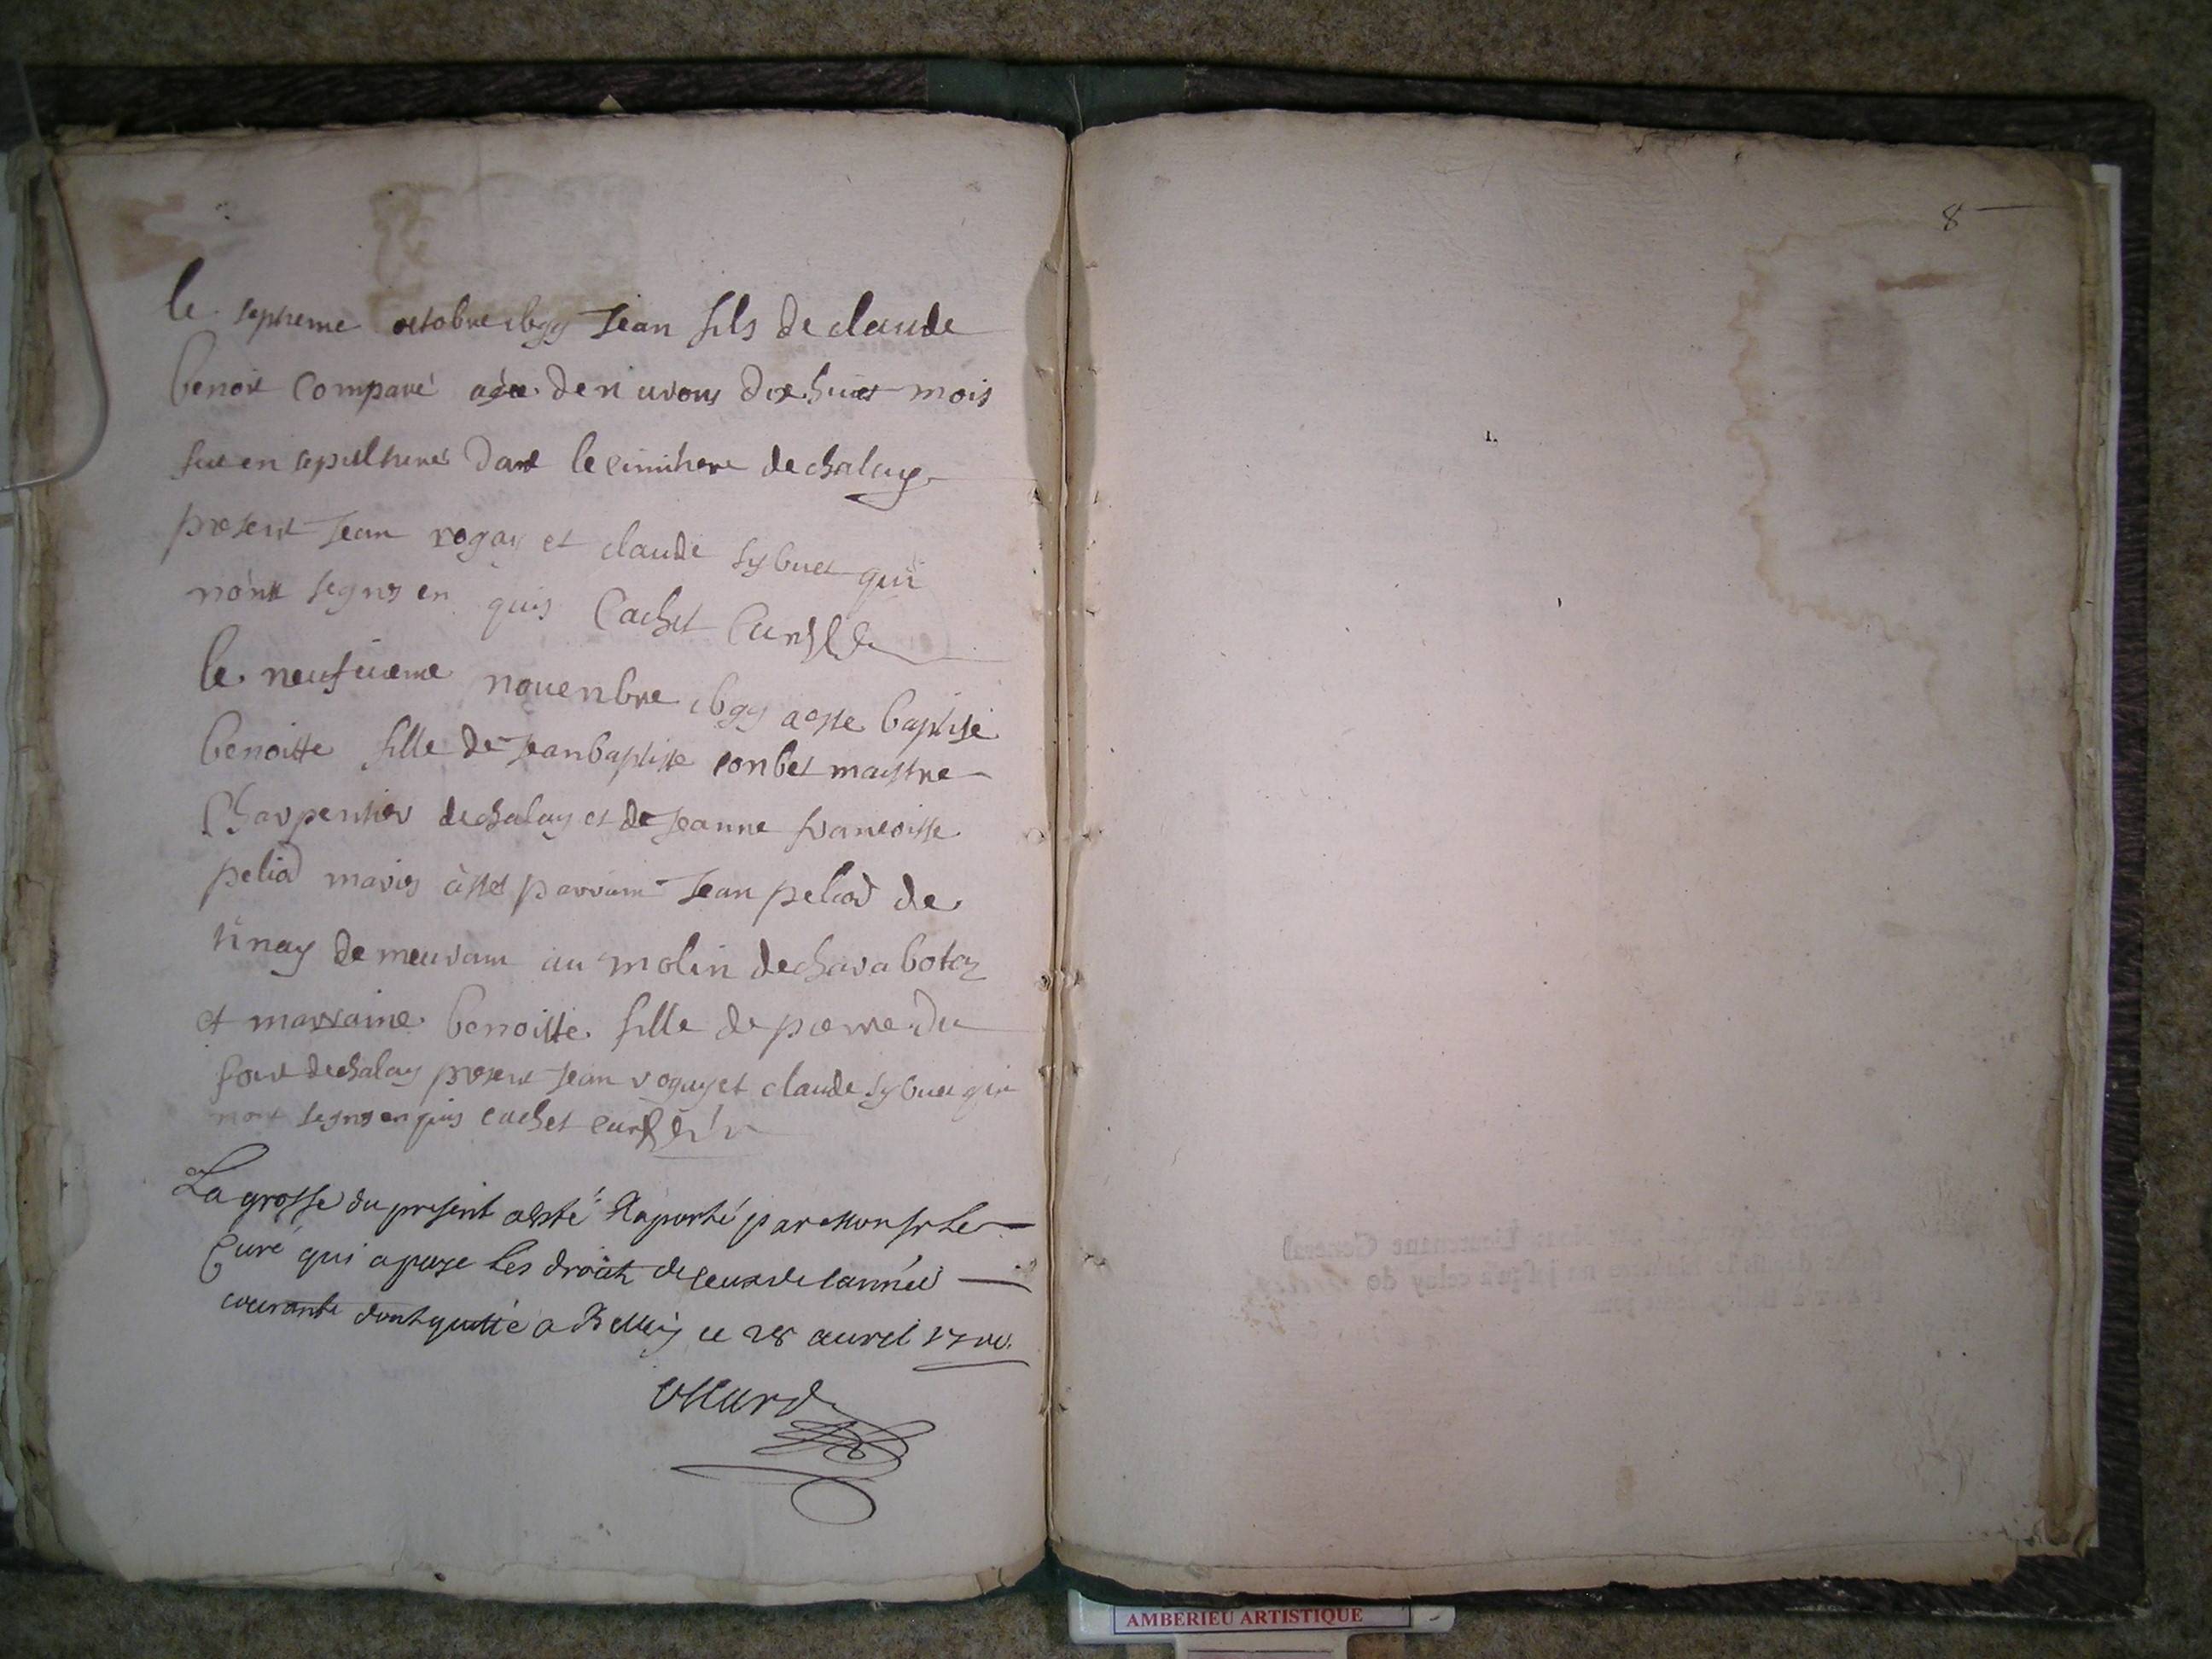 le septieme octobre 1699 Jean fils de claude
benoit Comparé agée denuirons dixhuict mois
fut en sepulture dans le cimitiere de chaley
present Jean rogay et claude sybuet qui
nont segnes en quis Cachet Curé
le neufuieme nouenbre 1699 a este baptisé
benoitte fille de Jean baptiste conbet maistre
Charpentier de chaley et de Jeanne francoisse
peliod maries a esté parrain Jean peliod de
tinay demeurant au molin de charabotay
et marraine benoitte fille de pierre du
four de chaley present Jean rogay et claude sybuet qui
nont segnes en quis cachet curé
La grosse du present a esté Raporté par Monsr Le
Curé qui a paye Les droicts de ceux de lannee
courante dont quitté a Belley ce 28 auvril 1700.
8
Lieutenant General
jusqu'à celuy de
AMBERIEU ARTISTIQUE